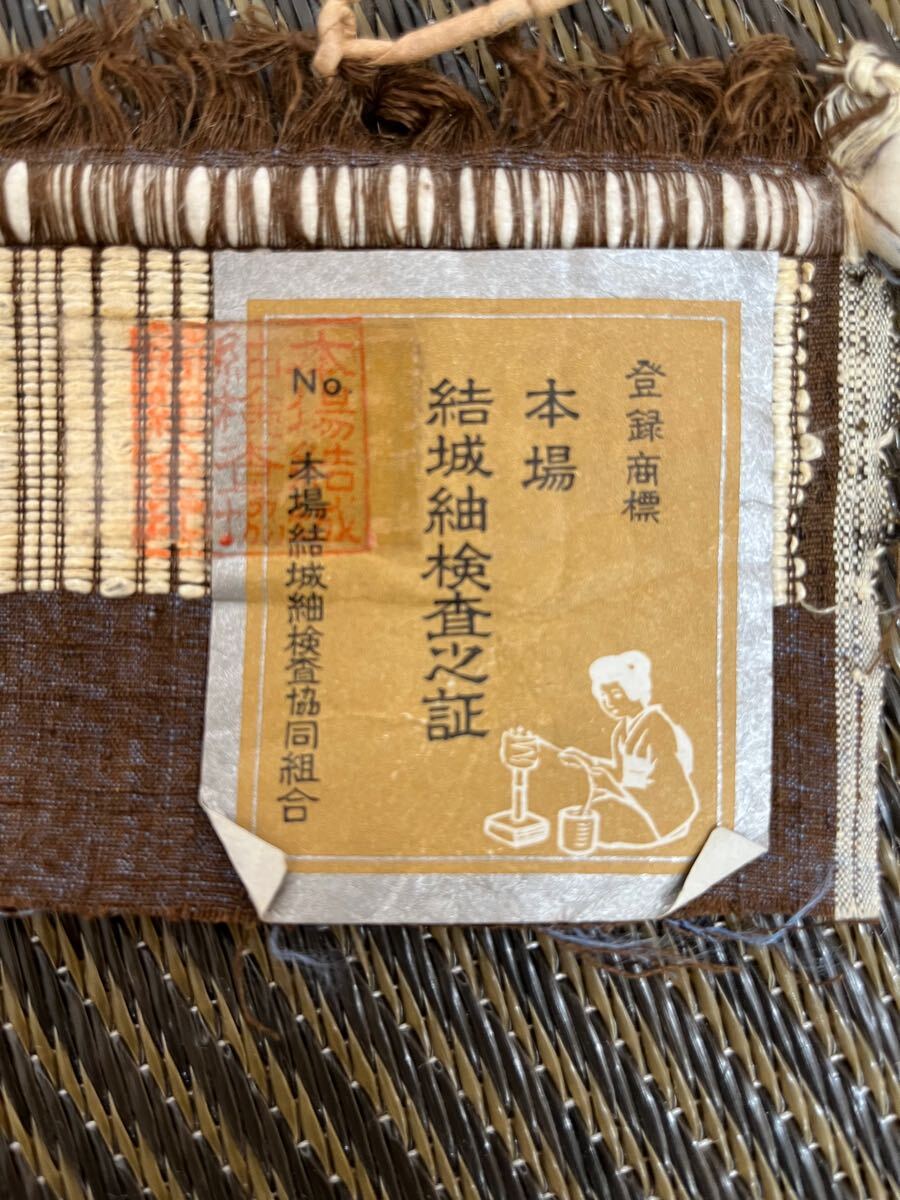 登録商標
本場
結城紬検査之証
No.
本場結城紬検査協同組合